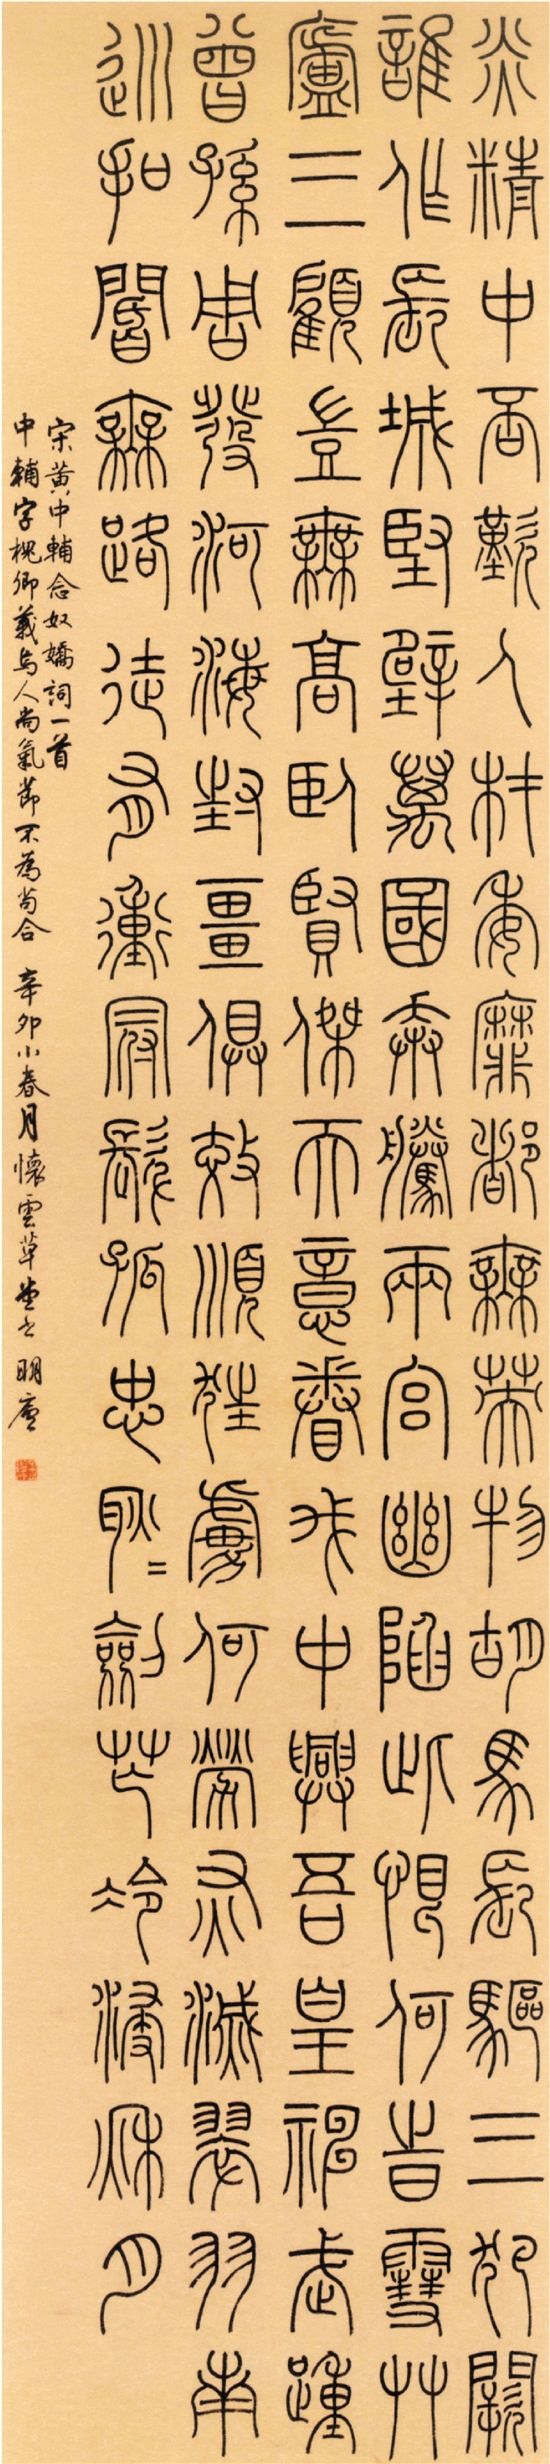 炎精中否歎人材委靡都無英物胡馬長驅三犯闕
誰作長城堅壁萬國奔騰兩宮幽陷此恨何旹雪艸
廬三顧豈無高臥賢傑天意眷我中興吾皇神武踵
曾孫周發河海封疆俱效順狂虜何勞灰滅翠羽南
巡扣閽無路徒有衝冠髮孤忠耿=劍芒冷浸秋月
宋黃中輔念奴嬌詞一首
中輔字槐卿義烏人尚氣節不為苟合 辛卯小春月懷雲草堂 明